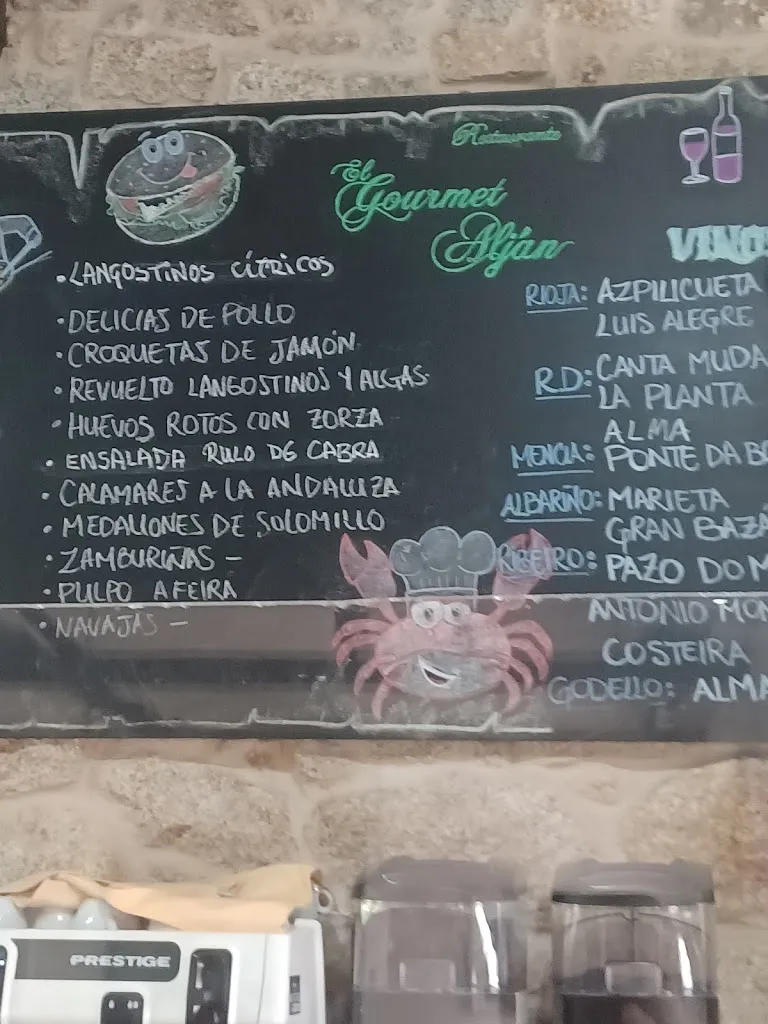 Restaurante
El
Gourmet
Alján
• LANGOSTINOS CÍTRICOS
• DELICIAS DE POLLO
• CROQUETAS DE JAMÓN
• REVUELTO LANGOSTINOS Y ALGAS
• HUEVOS ROTOS CON ZORZA
• ENSALADA RULO DE CABRA
• CALAMARES A LA ANDALUZA
• MEDALLONES DE SOLOMILLO
• ZAMBURIÑAS –
• PULPO A FEIRA
• NAVAJAS –
VINO
RIOJA: AZPILICUETA
LUIS ALEGRE
R.D: CANTA MUDA
LA PLANTA
ALMA
MENCIA: PONTE DA BO
ALBARIÑO: MARIETA
GRAN BAZÁ
RIBEIRO: PAZO DO M
ANTONIO MON
COSTEIRA
GODELLO: ALMA
PRESTIGE